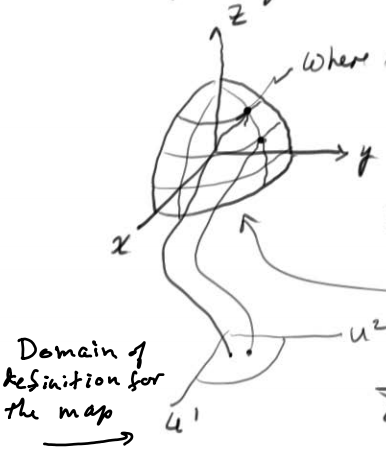 z
where
y
x
u²
Domain of
definition for
the map
u¹